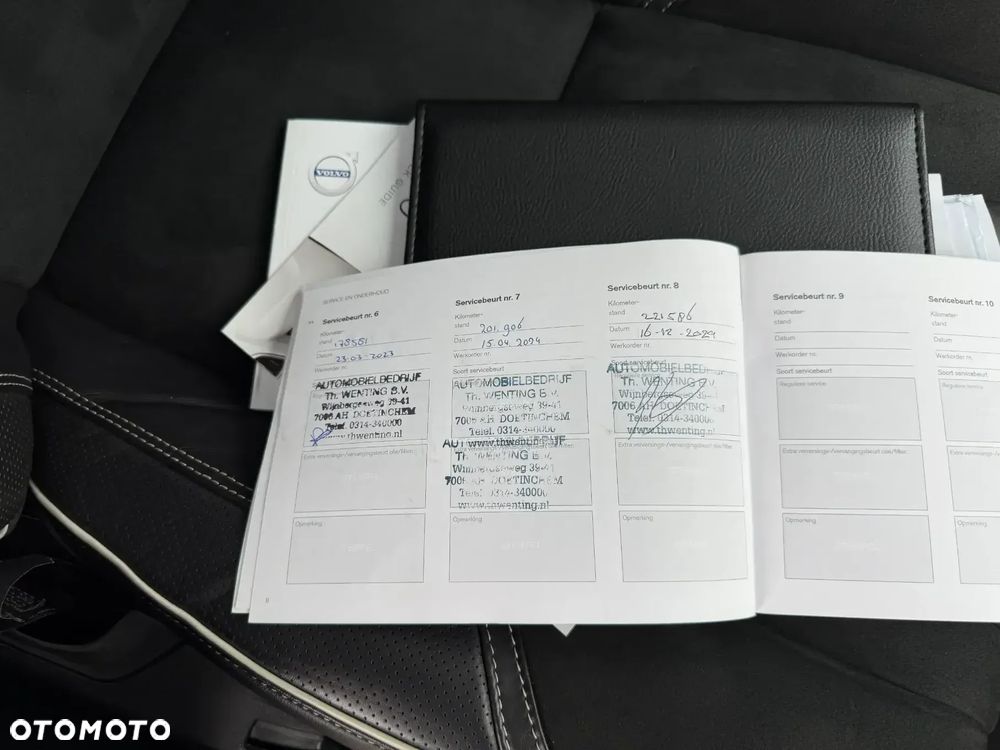 VOLVO
GUIDE
SERVICE EN ONDERHOUD
Servicebeurt nr. 6
Kilometer-
stand 178551
Datum 23-03-2023
Werkorder nr.
AUTOMOBIELBEDRIJF
Th. WENTING B.V.
Wijnbergseweg 39-41
7006 AH DOETINCHEM
Telef. 0314-340000
www.thwenting.nl
Extra verversings-/vervangingsbeurt olie/filter:
Opmerking
8
Servicebeurt nr. 7
Kilometer-
stand 201.906
Datum 15.04.2024
Werkorder nr.
Soort servicebeurt
AUTOMOBIELBEDRIJF
Th. WENTING B.V.
Wijnbergseweg 39-41
7006 AH DOETINCHEM
Telef. 0314-340000
www.thwenting.nl
AUTOMOBIELBEDRIJF
Th. WENTING B.V.
Wijnbergseweg 39-41
7006 AH DOETINCHEM
Telef. 0314-340000
www.thwenting.nl
Opmerking
Servicebeurt nr. 8
Kilometer-
stand 221586
Datum 16-12-2024
Werkorder nr.
Soort servicebeurt
AUTOMOBIELBED
Th. WENTING B.V.
Wijnbergseweg 39-
7006 AH DOETINCH
Telef. 0314-34000
www.thwenting.nl
Extra verversings-/vervangingsbeurt olie/filter:
Opmerking
Servicebeurt nr. 9
Kilometer-
stand
Datum
Werkorder nr.
Soort servicebeurt
Reguliere service
Extra verversings-/vervangingsbeurt olie/filter:
Opmerking
Servicebeurt nr. 10
Kilometer-
stand
Datum
Werkorder nr.
Soort servicebeurt
Reguliere service
Extra verversings-
Opmerking
OTOMOTO